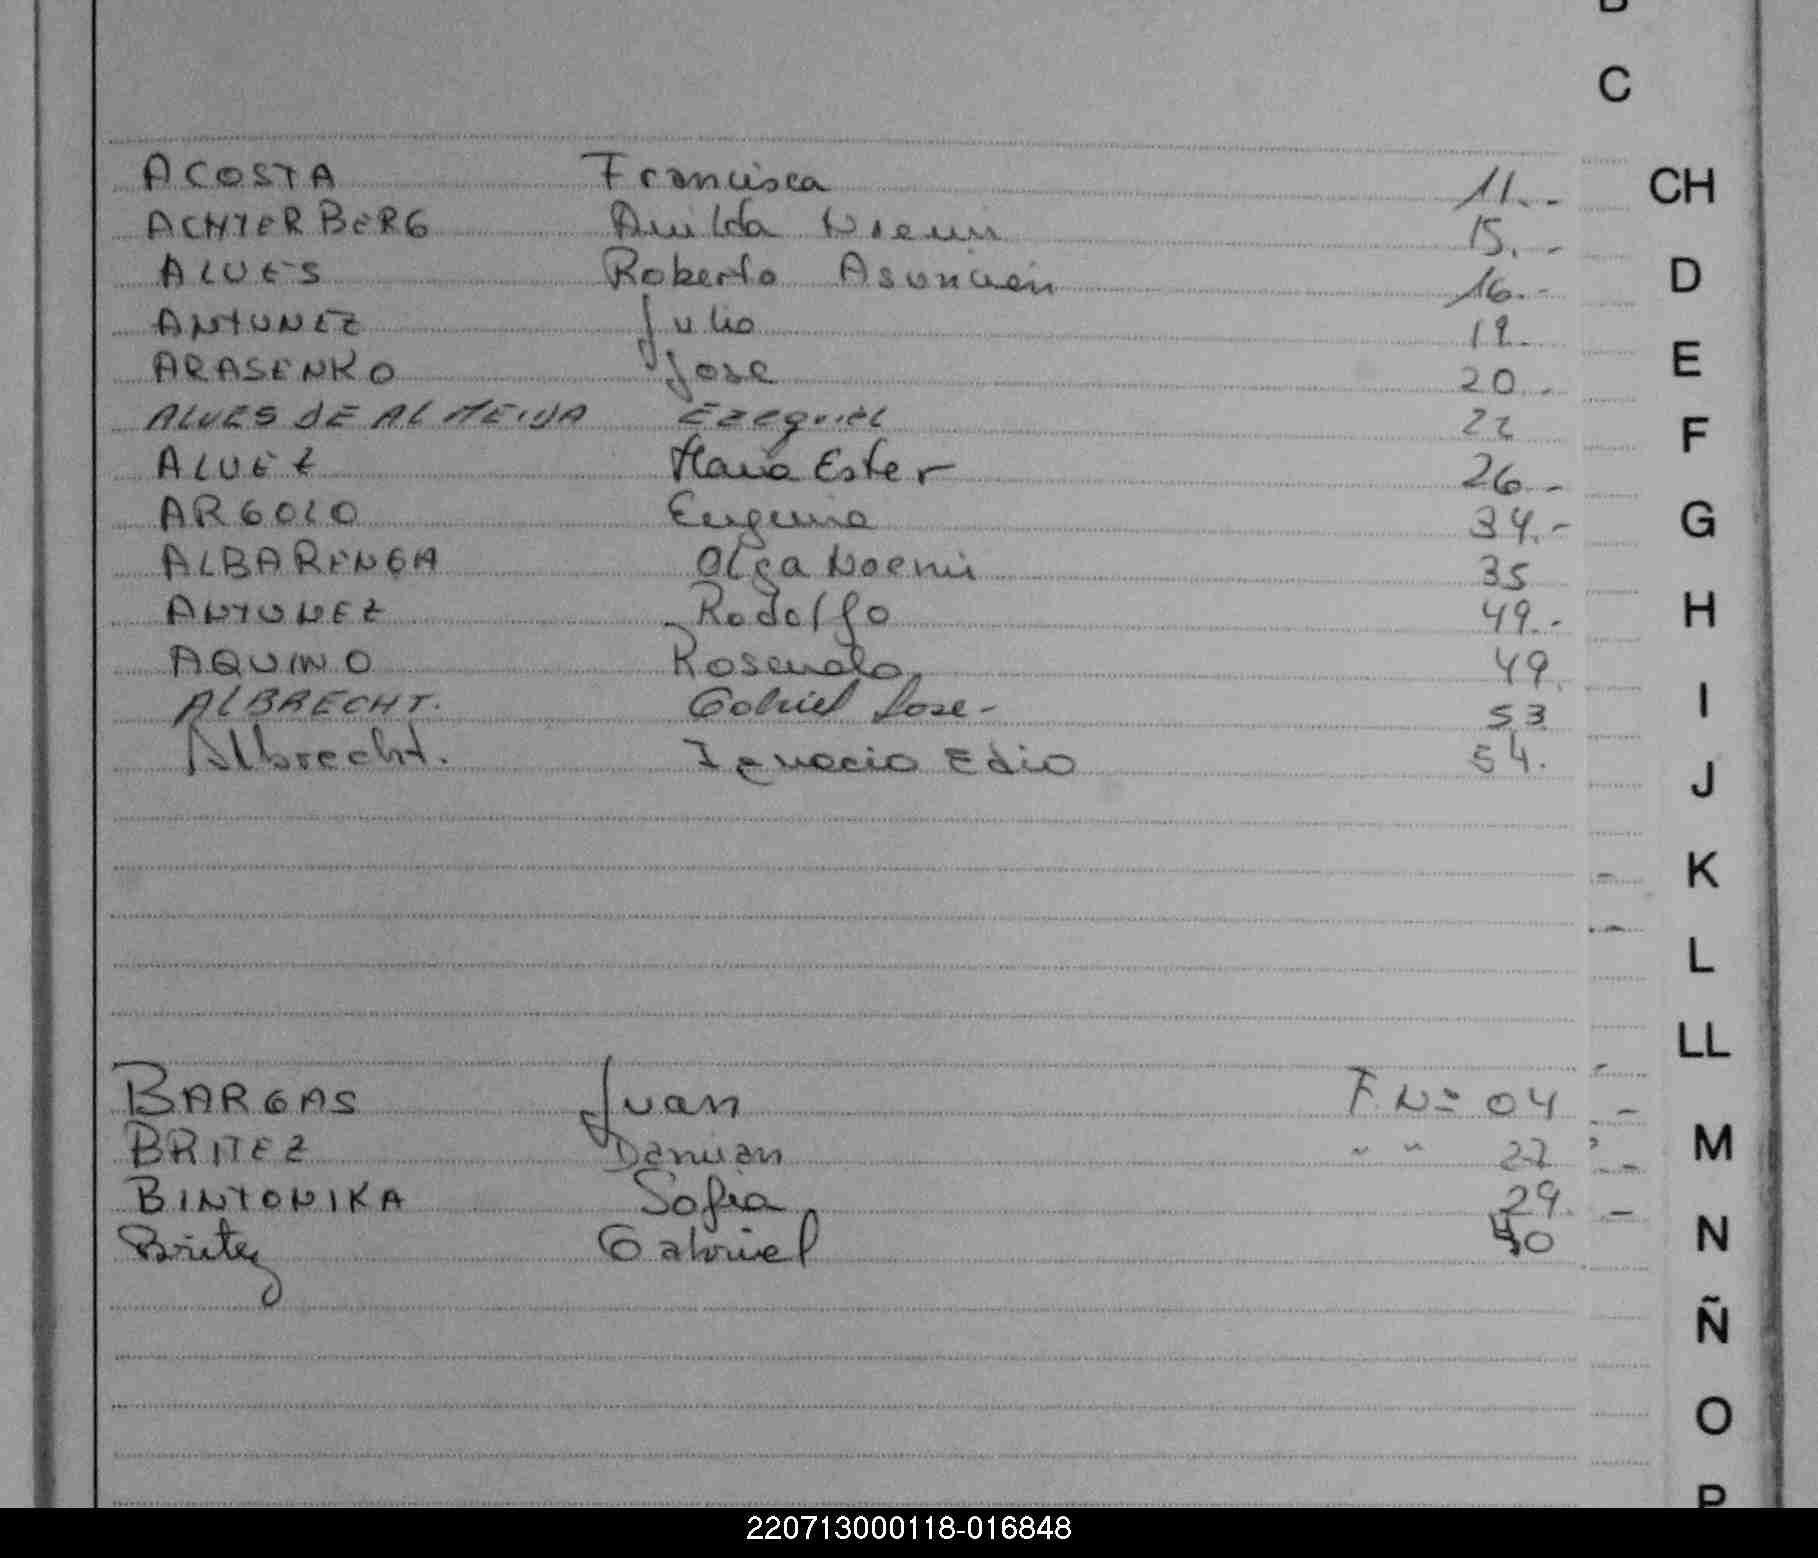 B
C
ACOSTA Francisca 11.-
CH
ACHTERBERG Anilda Noemi 15.-
ALVES Roberto Asuncion 16.-
D
ANTUNEZ Julio 19.
ARASENKO Jose 20.-
E
ALVES DE ALMEIDA Ezequiel 22
F
ALVEZ Maria Ester 26.-
ARGOLO Eugenio 34.-
G
ALBARENGA Olga Noemi 35
ANTUNEZ Rodolfo 49.-
H
AQUINO Rosendo 49.
ALBRECHT. Gabriel Jose- 53
I
Albrecht. Ignacio Edio 54.
J
K
L
LL
BARGAS Juan F. Nº 04
M
BRITEZ Damian " " 27
BINTONIKA Sofia 29.
N
Britez Gabriel 40
Ñ
O
P
220713000118-016848